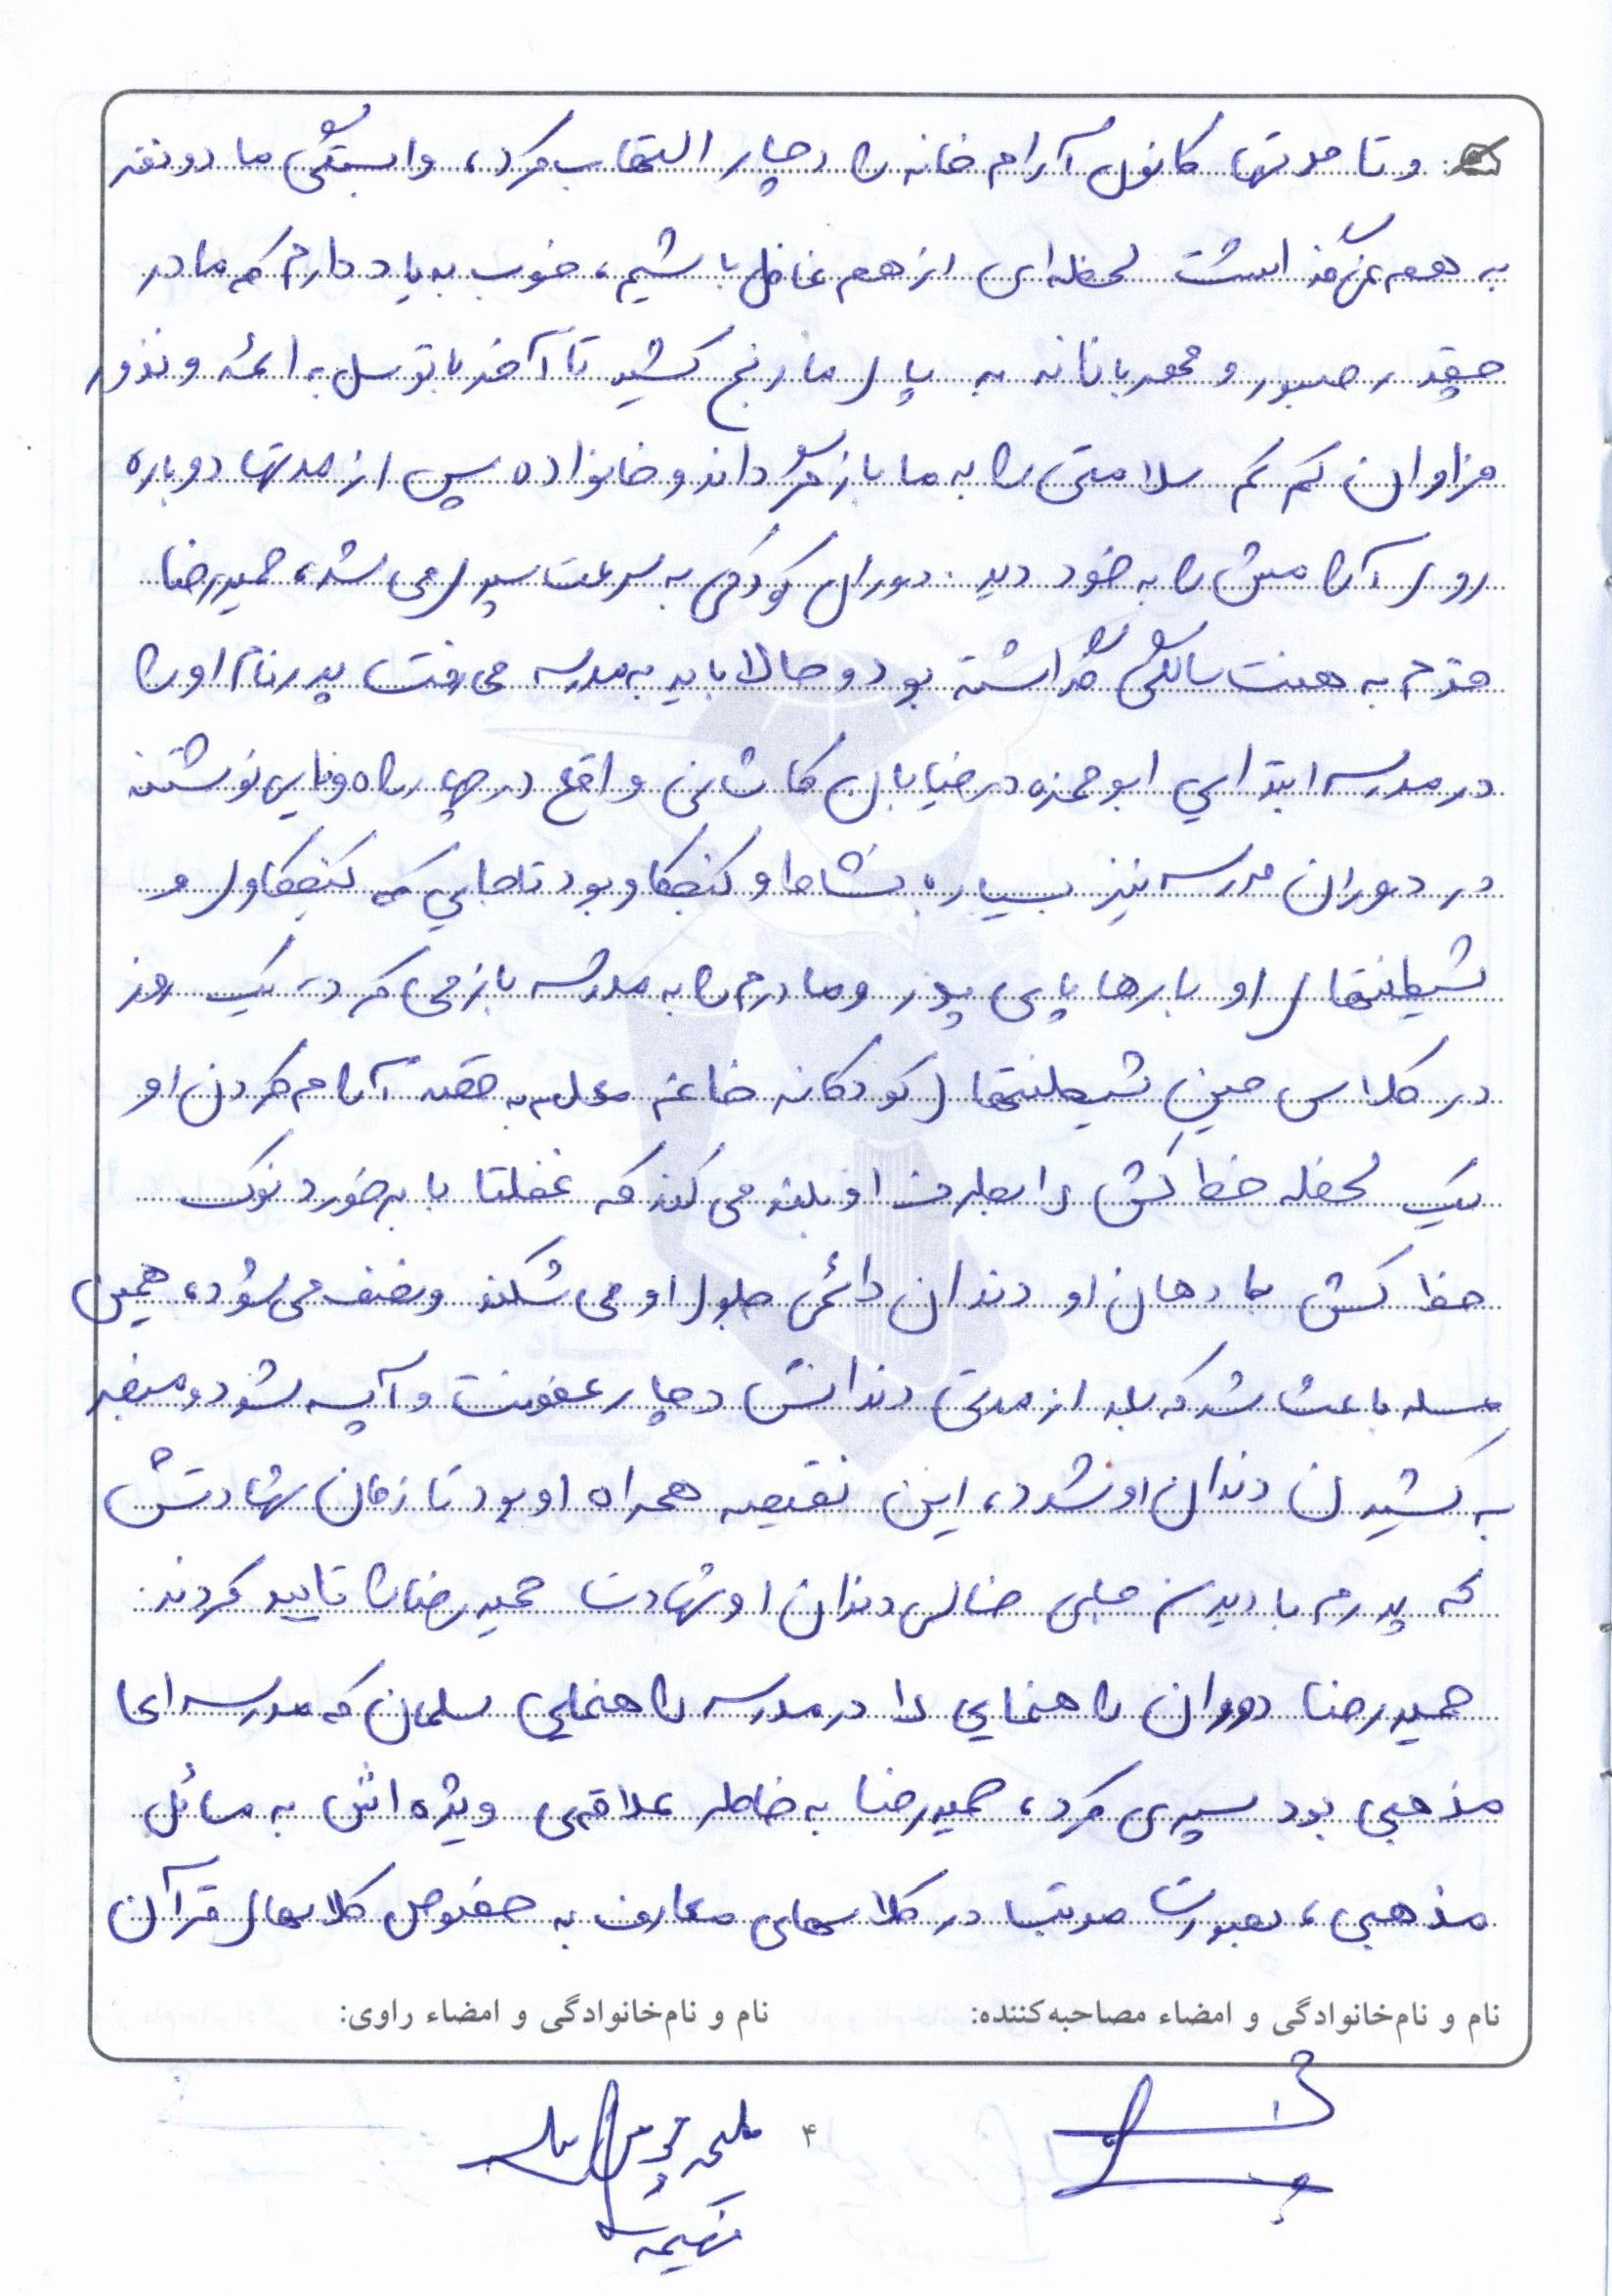 و تا مدتها کانون آرام خانه را دچار التهاب کرد، وابستگی ما دو نفر
به هم نمی‌گذاشت لحظه‌ای از هم غافل باشیم، خوب به یاد دارم که مادر
چقدر صبور و مهربانانه به پای ما رنج کشید تا آخر با توسل به ائمه و نذور
فراوان کم کم سلامتی را به ما بازگرداند و خانواده پس از مدتها دوباره
روی آرامش را به خود دید. دوران کودکی به سرعت سپری می شد، حمیدرضا
قدم به هفت سالگی گذاشته بود و حالا باید به مدرسه می رفت پدر نام او را
در مدرسه ابتدایی ابوحمزه در خیابان کاشانی واقع در چهار راه وفایی نوشتند
در دوران مدرسه نیز بسیار با نشاط و کنجکاو بود تا جایی که کنجکاوی و
شیطنتهای او بارها پای پدر و مادرم را به مدرسه باز می کرد، یک روز
در کلاس حین شیطنتهای کودکانه خانم معلم به قصد آرام کردن او
یک لحظه خط کش را بطرف او بلند می کند که غفلتا با برخورد نوک
خط کش با دهان او دندان دائمی جلوی او می شکند و نصف می شود، همین
مسله باعث شد که بعد از مدتی دندانش دچار عفونت و آبسه شود و منجر
به کشیدن دندان او شد، این نقیصه همراه او بود تا زمان شهادتش
که پدرم با دیدن جای خالی دندان او شهادت حمیدرضا را تایید کردند.
حمیدرضا دوران راهنمایی را در مدرسه راهنمایی سلمان که مدرسه ای
مذهبی بود سپری کرد، حمیدرضا به خاطر علاقه‌ی ویژه اش به مسائل
مذهبی، بصورت مرتب در کلاسهای معارف به خصوص کلاسهای قرآن
نام و نام‌خانوادگی و امضاء مصاحبه‌کننده: نام و نام‌خانوادگی و امضاء راوی:
۴